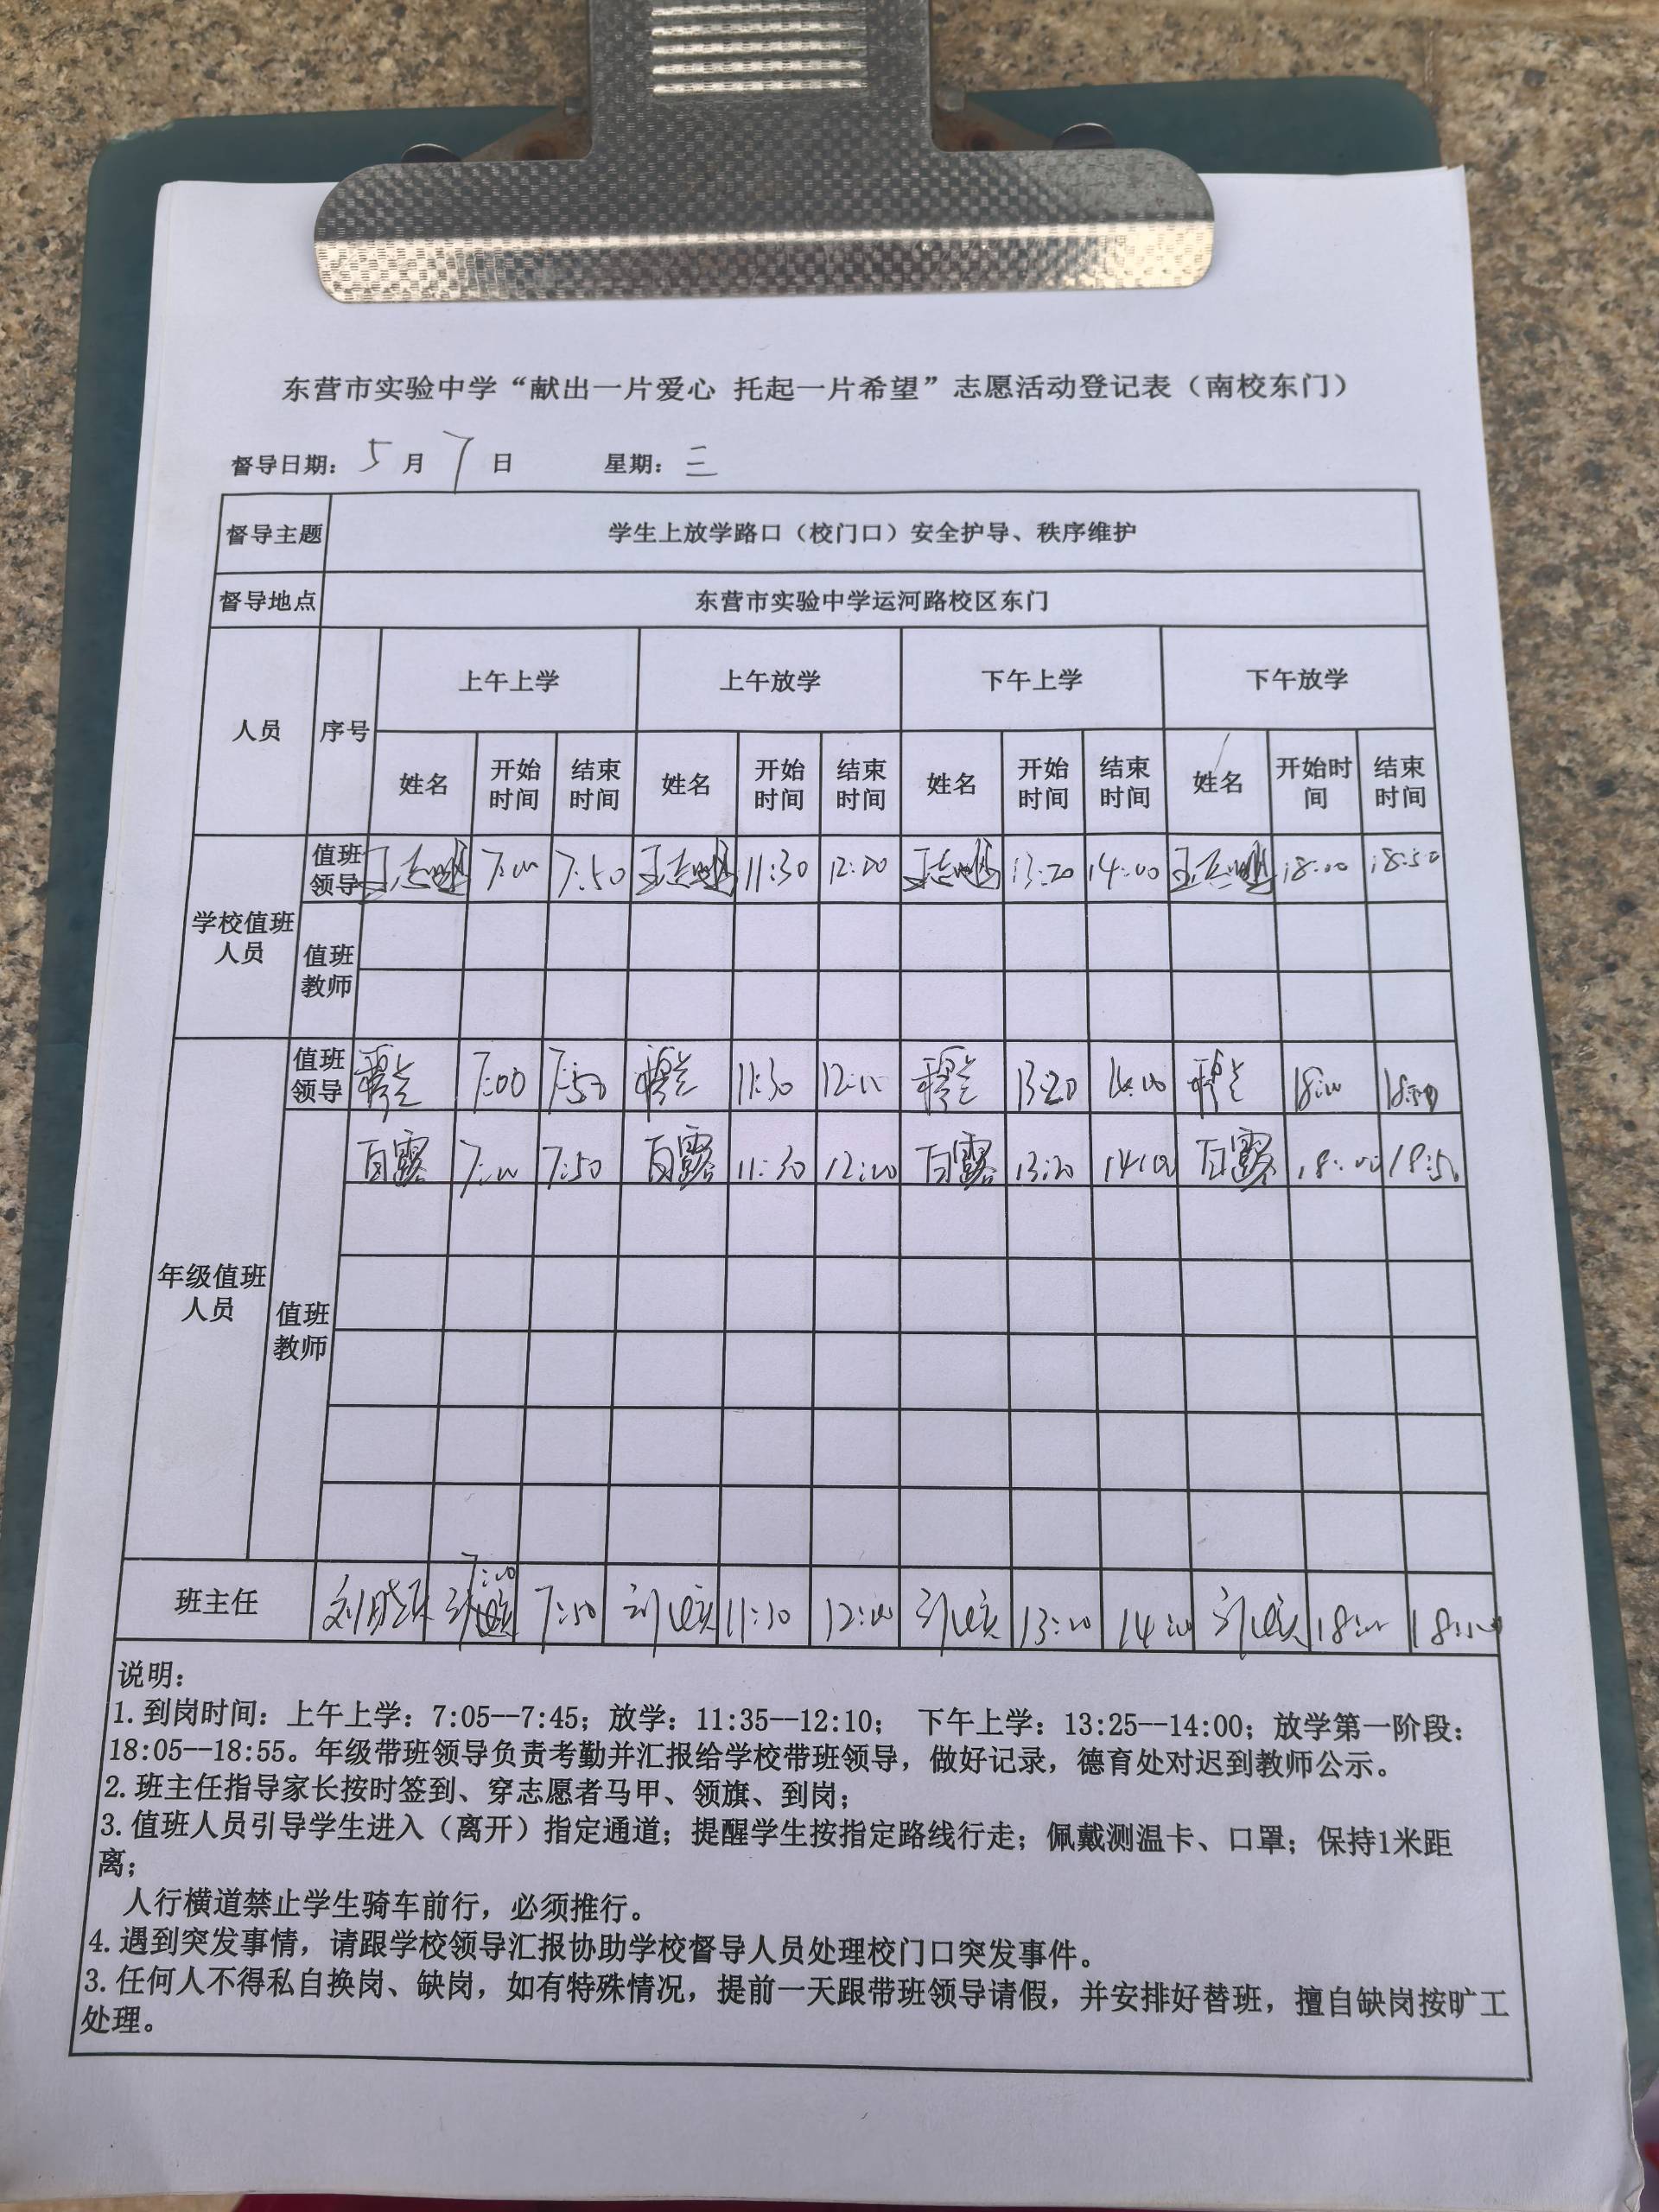 东营市实验中学“献出一片爱心 托起一片希望”志愿活动登记表（南校东门）
督导日期： 5 月 7 日 星期：三
督导主题 学生上放学路口（校门口）安全护导、秩序维护
督导地点 东营市实验中学运河路校区东门
人员 序号 上午上学 上午放学 下午上学 下午放学
姓名 开始时间 结束时间 姓名 开始时间 结束时间 姓名 开始时间 结束时间 姓名 开始时间 结束时间
学校值班人员 值班领导 7:00 7:50 11:30 12:00 13:20 14:00 18:00 18:50
值班教师
年级值班人员 值班领导 7:00 7:50 11:30 12:00 13:20 14:00 18:00 18:50
值班教师 白露 7:00 7:50 白露 11:30 12:00 白露 13:20 14:00 白露 18:00 18:50
班主任 7:00 7:50 11:30 12:00 13:20 14:00 18:00 18:50
说明：
1.到岗时间：上午上学：7:05--7:45；放学：11:35--12:10； 下午上学：13:25--14:00；放学第一阶段：
18:05--18:55。年级带班领导负责考勤并汇报给学校带班领导，做好记录，德育处对迟到教师公示。
2.班主任指导家长按时签到、穿志愿者马甲、领旗、到岗；
3.值班人员引导学生进入（离开）指定通道；提醒学生按指定路线行走；佩戴测温卡、口罩；保持1米距
离；
人行横道禁止学生骑车前行，必须推行。
4.遇到突发事情，请跟学校领导汇报协助学校督导人员处理校门口突发事件。
3.任何人不得私自换岗、缺岗，如有特殊情况，提前一天跟带班领导请假，并安排好替班，擅自缺岗按旷工
处理。